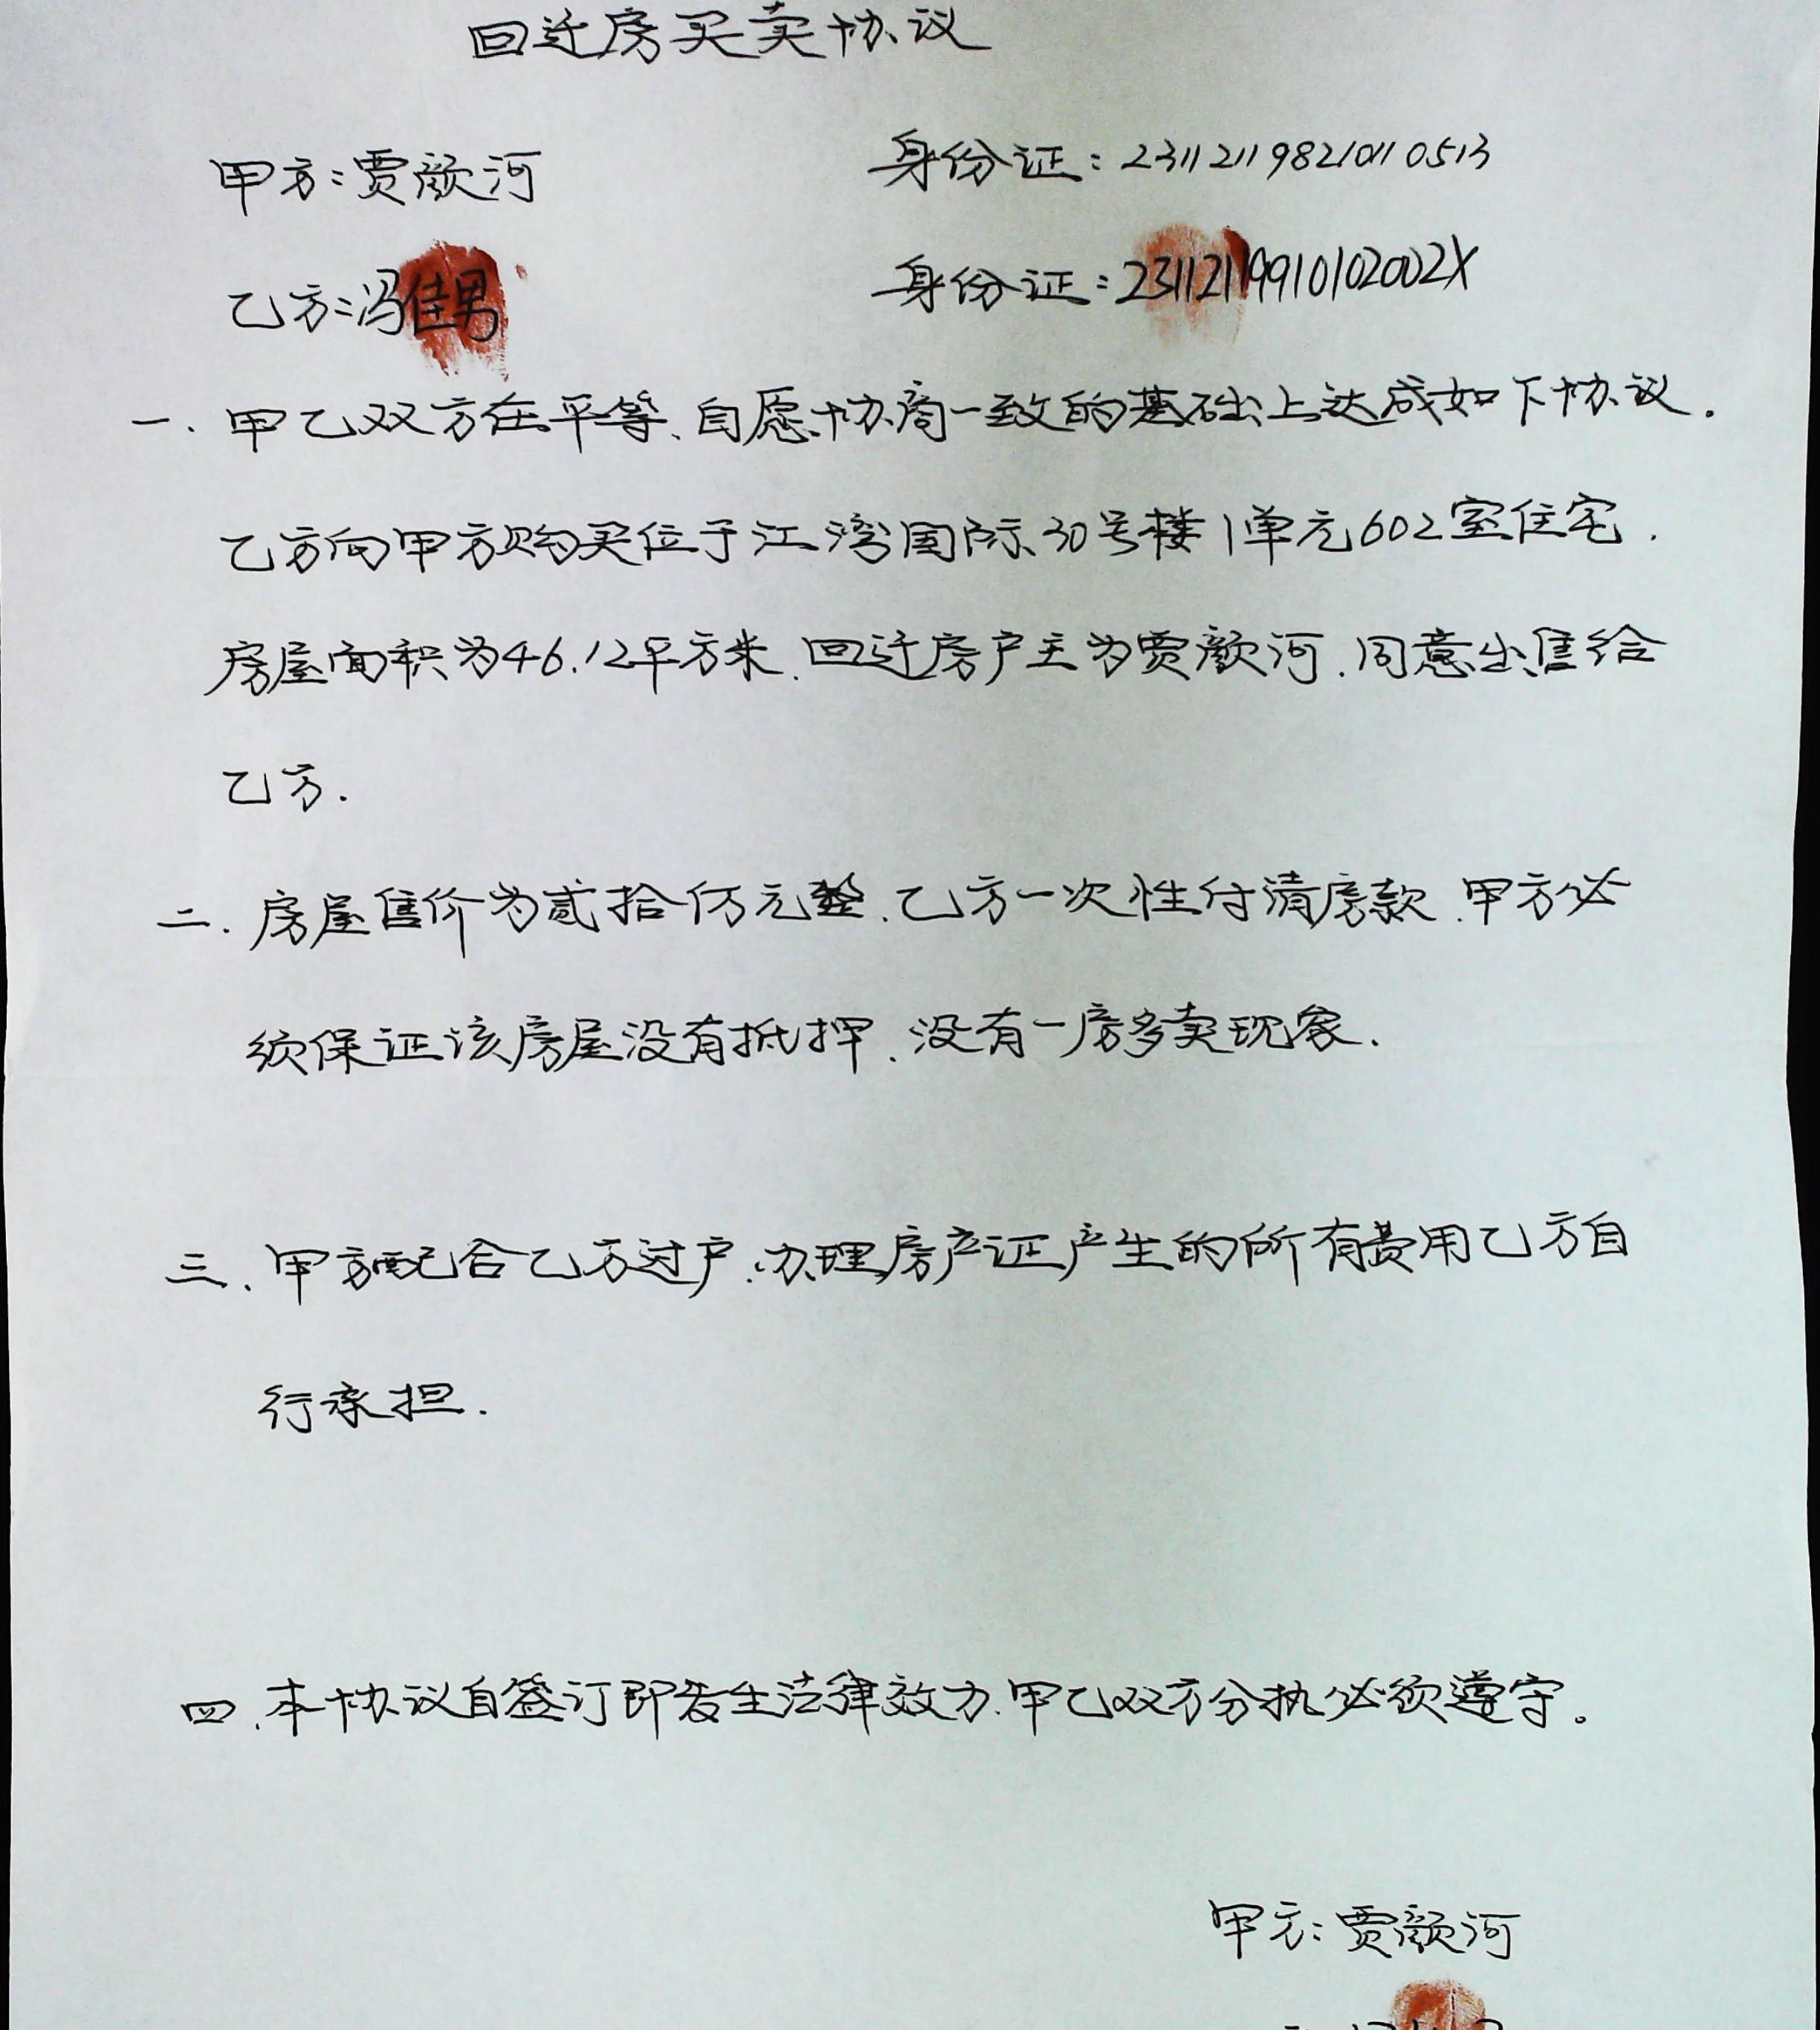 回迁房买卖协议
甲方:贾颜河 身份证:231121198210110513
乙方:冯佳男 身份证:23112119910102002X
一.甲乙双方在平等、自愿、协商一致的基础上达成如下协议.
乙方向甲方购买位于江湾国际30号楼1单元602室住宅.
房屋面积为46.12平方米.回迁房户主为贾颜河.同意出售给
乙方.
二.房屋售价为贰拾仟元整.乙方一次性付清房款.甲方必
须保证该房屋没有抵押.没有一房多卖现象.
三.甲方配合乙方过户.办理房产证产生的所有费用乙方自
行承担.
四.本协议自签订即发生法律效力.甲乙双方分执必须遵守。
甲方:贾颜河